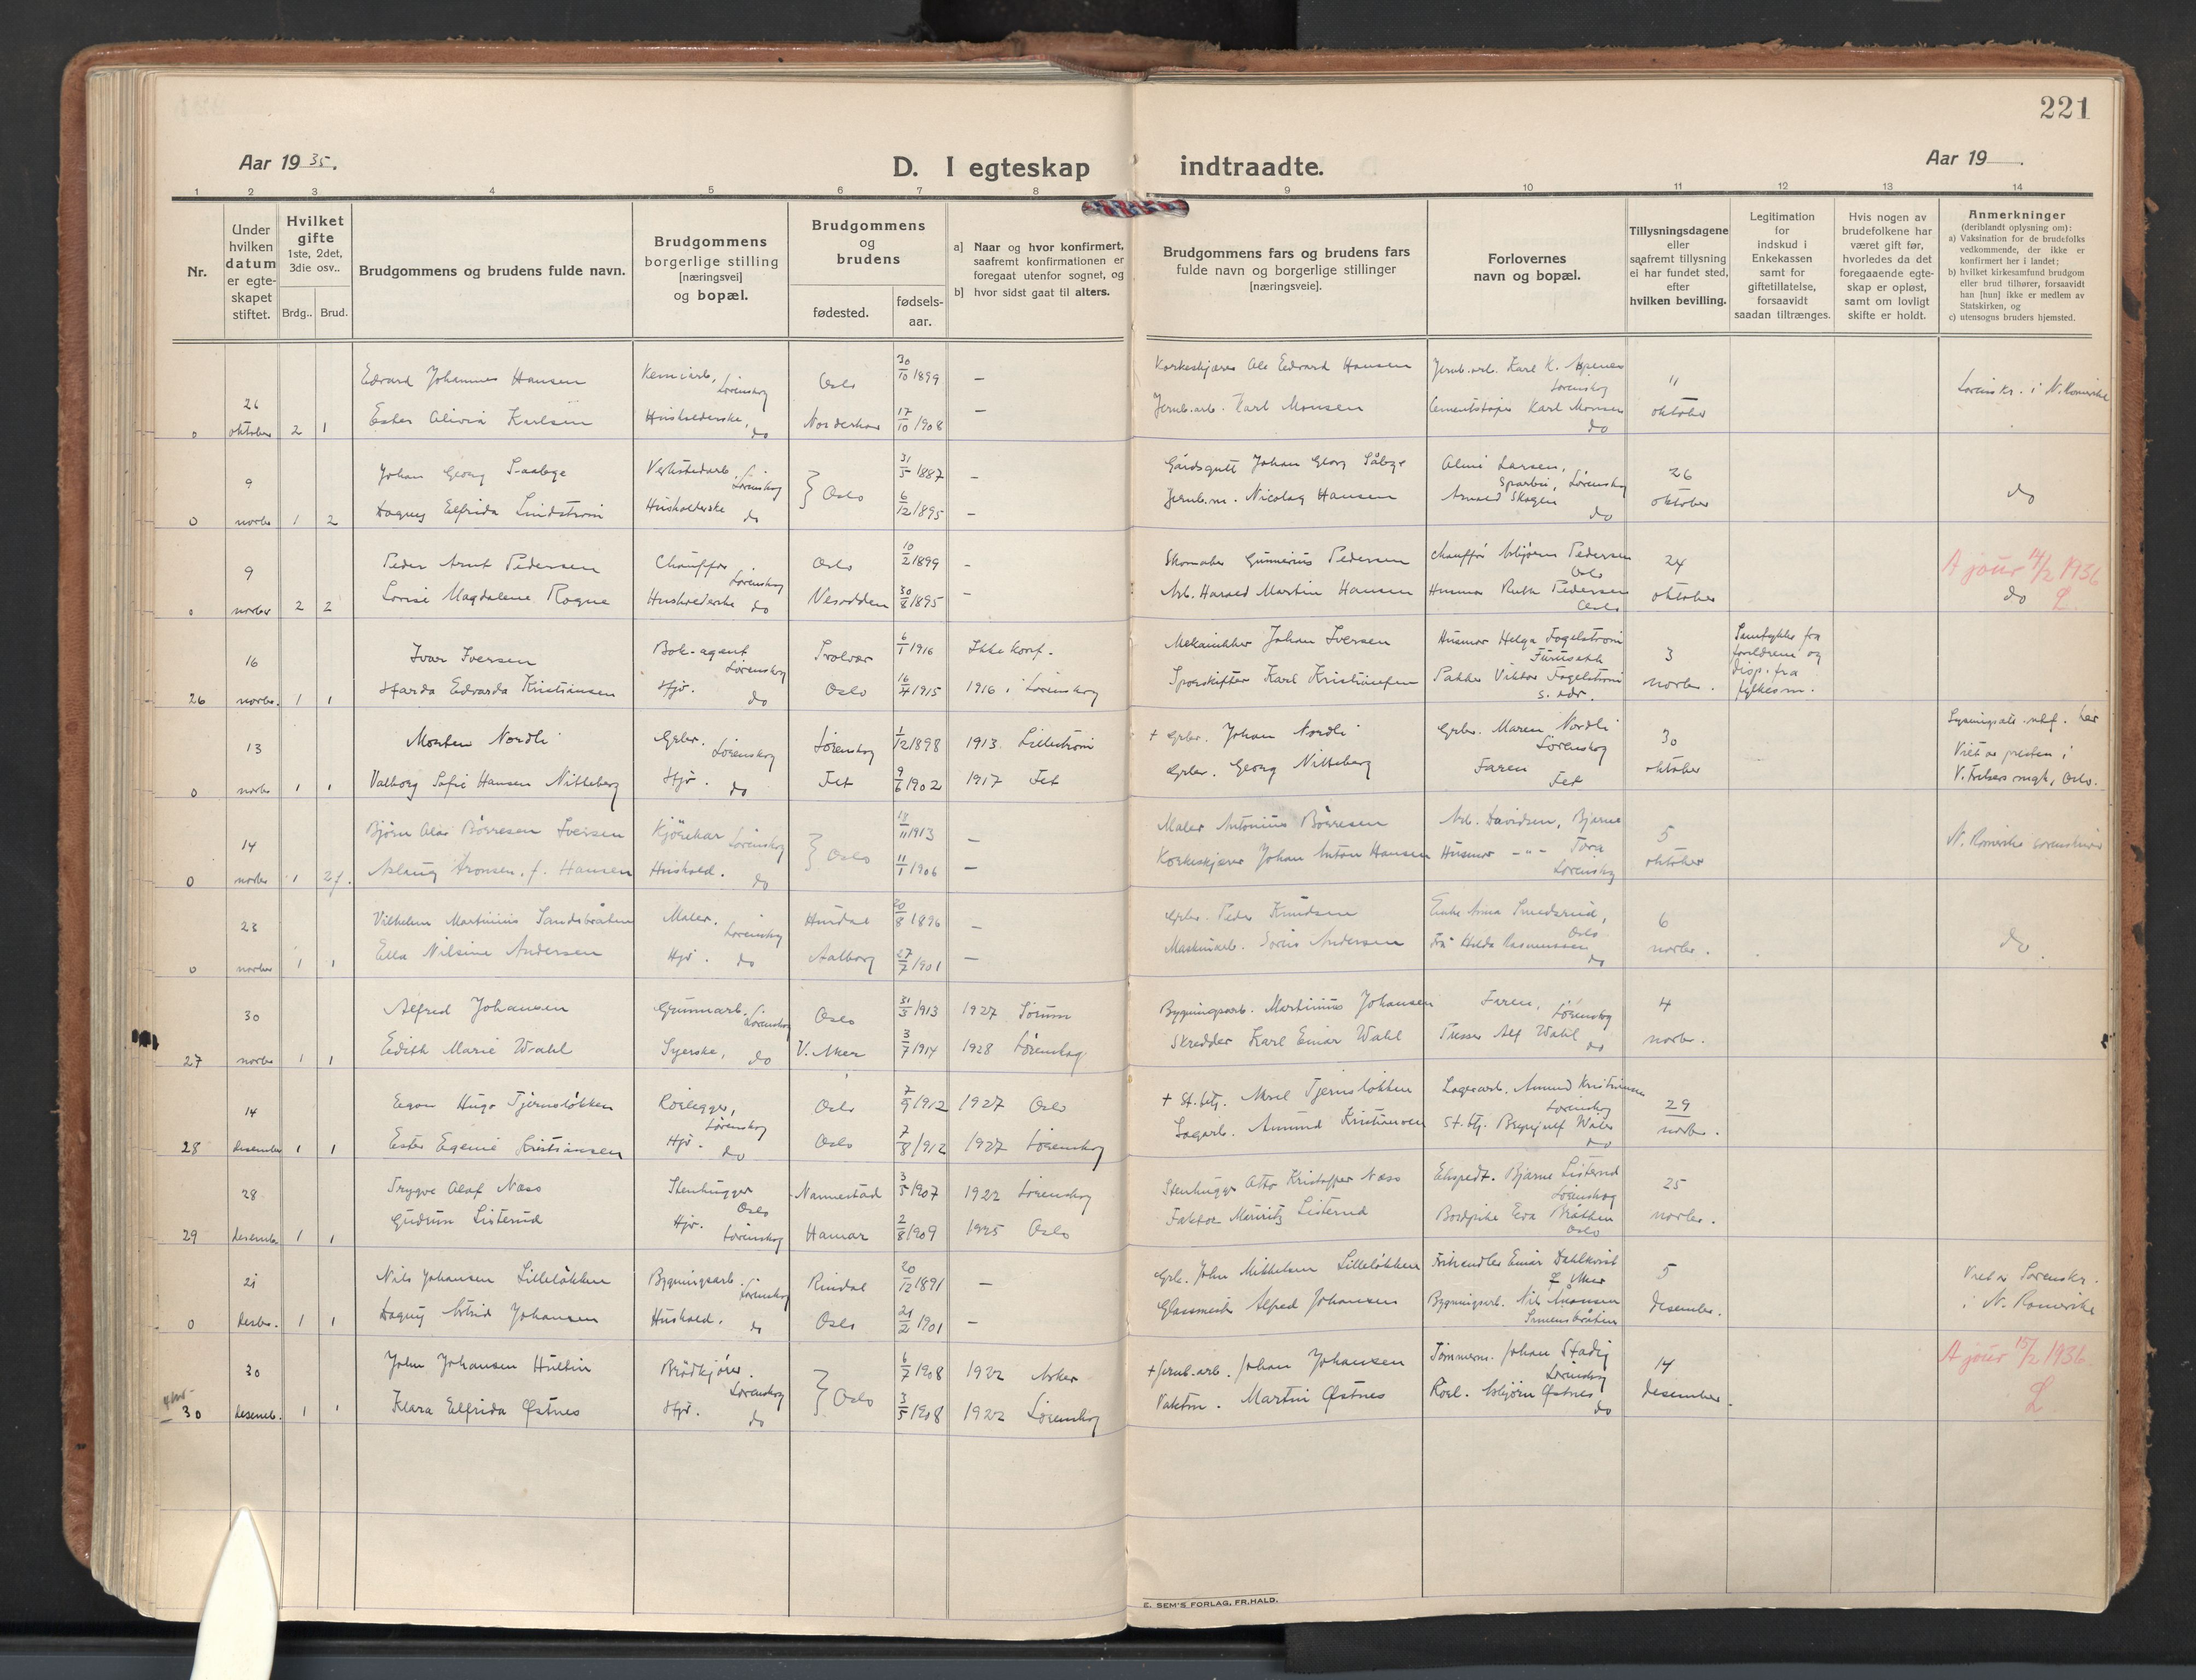 221
Aar 19 35.
D. I egteskap indtraadte.
Aar 19
1 2 3 4 5 6 7 8 9 10 11 12 13 14
Nr.
Under hvilken datum er egte-skapet stiftet.
Hvilket gifte 1ste, 2det, 3die osv..
Brdg.. Brud.
Brudgommens og brudens fulde navn.
Brudgommens borgerlige stilling [næringsvei] og bopæl.
Brudgommens og brudens
fødested.
fødsels-aar.
a] Naar og hvor konfirmert, saafremt konfirmationen er foregaat utenfor sognet, og
b] hvor sidst gaat til alters.
Brudgommens fars og brudens fars fulde navn og borgerlige stillinger [næringsveie].
Forlovernes navn og bopæl.
Tillysningsdagene eller saafremt tillysning ei har fundet sted, efter hvilken bevilling.
Legitimation for indskud i Enkekassen samt for giftetillatelse, forsaavidt saadan tiltrænges.
Hvis nogen av brudefolkene har været gift før, hvorledes da det foregaaende egte-skap er opløst, samt om lovligt skifte er holdt.
Anmerkninger (deriblandt oplysning om):
a) Vaksination for de brudefolks vedkommende, der ikke er konfirmert her i landet;
b) hvilket kirkesamfund brudgom eller brud tilhører, forsaavidt han [hun] ikke er medlem av Statskirken, og
c) utensogns bruders hjemsted.
Edvard Johannes Hansen Kemiarb., Lørenskog Oslo 30/10 1899 — Korkeskjærer Ole Edvard Hansen Jernb.arb. Karl K. Lørenskog 11
0 26 oktober 2 1 Ester Olivia Karlsen Husholderske, do Norderhov 17/10 1908 — Jernb.arb. Karl Monsen Cementstøper Karl Monsen do oktober
Johan Georg Saabye Verkstedarb. Lørenskog } Oslo 31/5 1887 — Gårdsgutt Johan Georg Såbye Larsen, Lørenskog 26 do
0 9 novbr 1 2 Dagny Elfrida Lindstrøm Husholderske do 6/12 1895 — Jernb.m. Nicolay Hansen Skogen do oktober
Peder Arnt Pedersen Chauffør Lørenskog Oslo 10/2 1899 — Skomaker Gunnerius Pedersen Chauffør Asbjørn Pedersen Oslo 24 A jour 14/2 1936
0 9 novbr 2 2 Lovise Magdalene Rogne Husholderske do Nesodden 30/8 1895 — Arb. Harald Martin Hansen Husmor Ruth Pedersen Oslo oktober do
Ivar Iversen Bok-agent Lørenskog Svolvær 6/1 1916 Ikke konf. Mekaniker Johan Iversen Husmor Helga Fagelstrøm Furuseth 3 Samtykke fra foreldrene og disp. fra fylkesm.
26 16 novbr. 1 1 Harda Edvarda Kristiansen Hjv. do Oslo 16/4 1915 1916 i Lørenskog Sporskifter Karl Kristiansen Pakker Viktor Fagelstrøm s. adr. novbr.
Morten Nordli Grbr. Lørenskog Lørenskog 1/12 1898 1913 Lillestrøm + Grbr. Johan Nordli Grbr. Maren Nordli Lørenskog 30 Lysningsatt. utf. her
0 13 novbr 1 1 Valborg Sofie Hansen Nitteberg Hjv. do Fet 9/6 1902 1917 Fet Grbr. Georg Nitteberg Faren Fet oktober Viet av presten i V. Frelsers mgh, Oslo.
Bjørn Olav Børresen Iversen Kjørekar Lørenskog } Oslo 1913 — Maler Antonius Børresen Arb. Davidsen, Bjarne 5 N. Romerike sorenskriveri
0 14 novbr 1 2 f. Aslaug Aronsen, f. Hansen Hushold. do 11/1 1906 — Korkeskjærer Johan Anton Hansen Husmor -"- Tora Lørenskog oktober
Vilhelm Martinius Sandsbråten Maler. Lørenskog Hurdal 20/8 1896 — Grbr. Peder Knudsen Enke Anna Smedsrud, Oslo 6 do.
0 23 novbr 1 1 Ella Nilsine Andersen Hjv. do Aalborg 27/7 1901 — Maskinarb. Andersen Fr. Hilda Rasmussen do novbr.
Alfred Johansen Gummiarb. Lørenskog Oslo 31/3 1913 1927 Sørum Bygningsarb. Martinius Johansen Faren, Lørenskog 4
27 30 novbr 1 1 Edith Marie Wahl Syerske, do V. Aker 3/7 1914 1928 Lørenskog Skredder Karl Einar Wahl Presser Alf Wahl do novbr.
Egon Hugo Tjernsløkken Rørlegger, Lørenskog Oslo 7/9 1912 1927 Oslo + St.btj. Tjernsløkken Lagerarb. Amund Kristiansen Lørenskog 29
28 14 desember 1 1 Ester Egenie Kristiansen Hjv. do Oslo 7/8 1912 1927 Lørenskog Lagarb. Amund Kristiansen St.btj. do novbr.
Trygve Olaf Næss Stenhugger Oslo Nannestad 3/5 1907 1922 Lørenskog Stenhugger Otto Kristoffer Næss Ekspedt. Bjarne Listerud Lørenskog 25
29 28 desemb. 1 1 Gudrun Listerud Hjv. Lørenskog Hamar 2/8 1909 1925 Oslo Faktor Mauritz Listerud Bordpike Eva Bråthen Oslo novbr.
Nils Johansen Lilleløkken Bygningsarb. Lørenskog Rindal 20/12 1891 — Grbr. John Mikkelsen Lilleløkken Einar Dahlkvist Ø. Aker 5 Viet av Sorenskr. i N. Romerike
0 21 desbr. 1 1 Dagny Astrid Johansen Hushold. do Oslo 21/2 1901 — Glassmester Alfred Johansen Bygningsarb. Nils desember.
John Johansen Hultin Brødkjører. Lørenskog } Oslo 6/7 1908 1922 Asker + Jernb.arb. Johan Johansen Tømmerm. Johan Stadig Lørenskog 14 A jour 15/2 1936
30 30 desemb. 1 1 Klara Elfrida Østnes Hjv. do 3/5 1908 1922 Lørenskog Vaktm. Martin Østnes Rørl. Asbjørn Østnes do desember.
E. SEM'S FORLAG, FR.HALD.